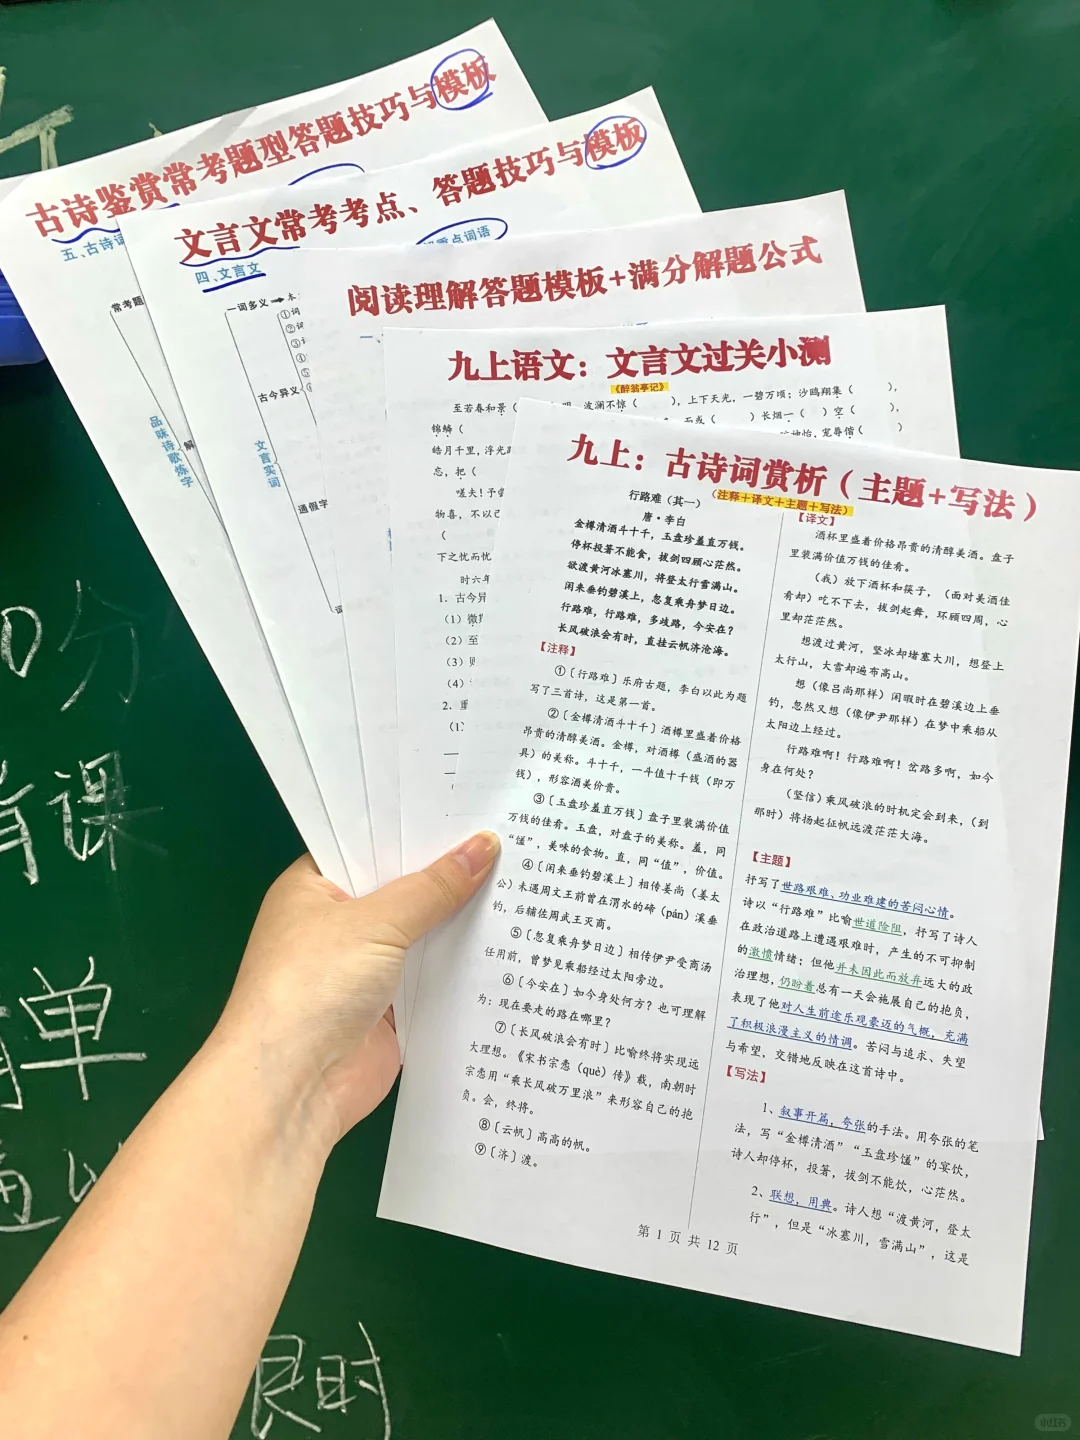 古诗鉴赏常考题型答题技巧与模板
五、古诗词
常考题
品味诗歌炼字
解
文言文常考考点、答题技巧与模板
四、文言文
重点词语
一词多义
本
古今异义
文言实词
通假字
阅读理解答题模板+满分解题公式
九上语文：文言文过关小测
《醉翁亭记》
至若春和景（
波澜不惊（ ），上下天光，一碧万顷；沙鸥翔集（ ），
锦鳞（
而或（ ）长烟一（ ）空（ ），
皓月千里，浮光跃
宠辱偕（ ）
忘，把（
嗟夫！予尝
物喜，不以己
（
下之忧而忧
时六年
1．古今异
（1）微
（2）至
（3）
（4）
2．重
（1
九上：古诗词赏析（主题+写法）
（注释＋译文＋主题＋写法）
行路难（其一）
唐·李白
金樽清酒斗十千，玉盘珍羞直万钱。
停杯投箸不能食，拔剑四顾心茫然。
欲渡黄河冰塞川，将登太行雪满山。
闲来垂钓碧溪上，忽复乘舟梦日边。
行路难，行路难，多歧路，今安在？
长风破浪会有时，直挂云帆济沧海。
【注释】
①〔行路难〕乐府古题，李白以此为题
写了三首诗，这是第一首。
②〔金樽清酒斗十千〕酒樽里盛着价格
昂贵的清醇美酒。金樽，对酒樽（盛酒的器
具）的美称。斗十千，一斗值十千钱（即万
钱），形容酒美价贵。
③〔玉盘珍羞直万钱〕盘子里装满价值
万钱的佳肴。玉盘，对盘子的美称。羞，同
“馐”，美味的食物。直，同“值”，价值。
④〔闲来垂钓碧溪上〕相传姜尚（姜太
公）未遇周文王前曾在渭水的磻（pán）溪垂
钓，后辅佐周武王灭商。
⑤〔忽复乘舟梦日边〕相传伊尹受商汤
任用前，曾梦见乘船经过太阳旁边。
⑥〔今安在〕如今身处何方？也可理解
为：现在要走的路在哪里？
⑦〔长风破浪会有时〕比喻终将实现远
大理想。《宋书宗悫（què）传》载，南朝时
宗悫用“乘长风破万里浪”来形容自己的抱
负。会，终将。
⑧〔云帆〕高高的帆。
⑨〔济〕渡。
【译文】
酒杯里盛着价格昂贵的清醇美酒。盘子
里装满价值万钱的佳肴。
（我）放下酒杯和筷子，（面对美酒佳
肴却）吃不下去，拔剑起舞，环顾四周，心
里却茫茫然。
想渡过黄河，坚冰却堵塞大川，想登上
太行山，大雪却遍布高山。
想（像吕尚那样）闲暇时在碧溪边上垂
钓，忽然又想（像伊尹那样）在梦中乘船从
太阳边上经过。
行路难啊！行路难啊！岔路多啊，如今
身在何处？
（坚信）乘风破浪的时机定会到来，（到
那时）将扬起征帆远渡茫茫大海。
【主题】
抒写了世路艰难、功业难建的苦闷心情。
诗以“行路难”比喻世道险阻，抒写了诗人
在政治道路上遭遇艰难时，产生的不可抑制
的激愤情绪；但他并未因此而放弃远大的政
治理想，仍盼着总有一天会施展自己的抱负，
表现了他对人生前途乐观豪迈的气概，充满
了积极浪漫主义的情调。苦闷与追求、失望
与希望，交错地反映在这首诗中。
【写法】
1、叙事开篇，夸张的手法。用夸张的笔
法，写“金樽清酒”“玉盘珍馐”的宴饮，
诗人却停杯，投箸，拔剑不能饮，心茫然。
2、联想，用典。诗人想“渡黄河，登太
行”，但是“冰塞川，雪满山”，这是
第 1 页 共 12 页
0分
背课
单
时